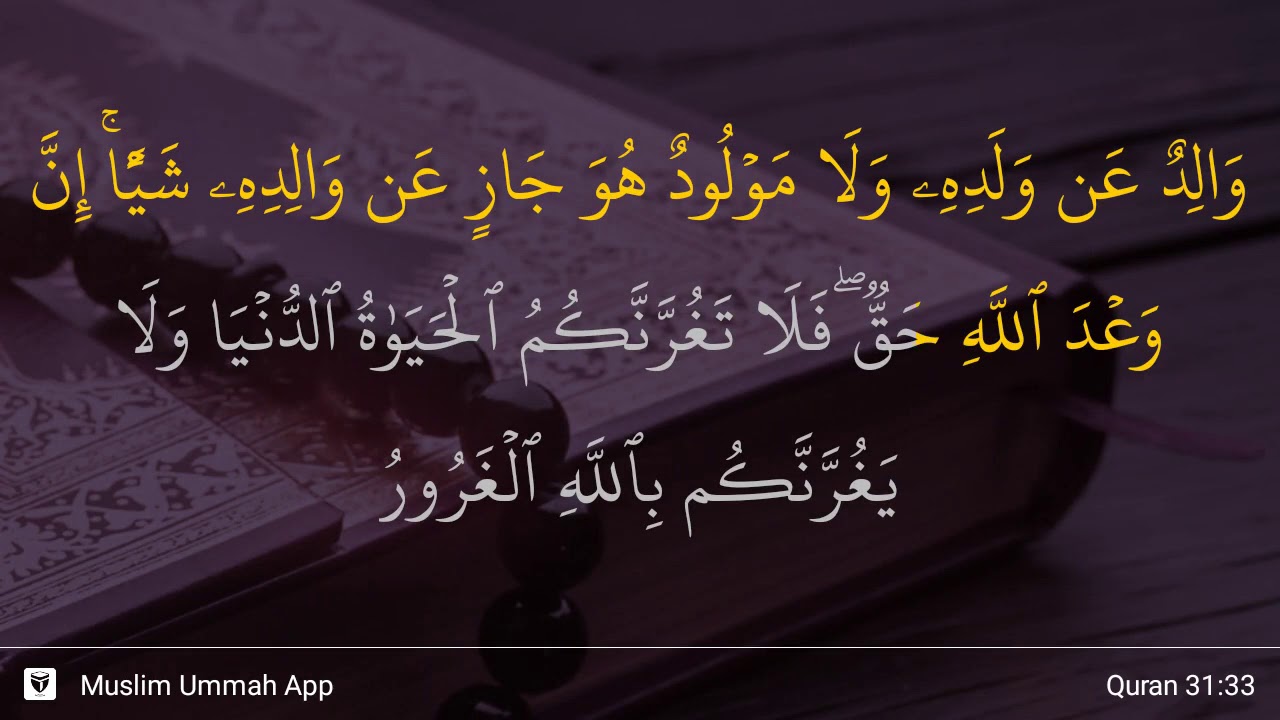 وَالِدٌ عَن وَلَدِهِۦ وَلَا مَوۡلُودٌ هُوَ جَازٍ عَن وَالِدِهِۦ شَيۡـًٔاۚ إِنَّ
وَعۡدَ ٱللَّهِ حَقࣱّۖ فَلَا تَغُرَّنَّكُمُ ٱلۡحَيَوٰةُ ٱلدُّنۡيَا وَلَا
يَغُرَّنَّكُم بِٱللَّهِ ٱلۡغَرُورُ
Muslim Ummah App
Quran 31:33